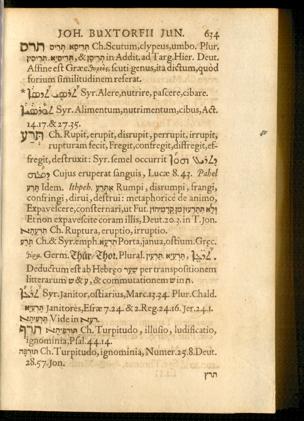 JOH. BUXTORFII JUN. 634
תרס Ch. Scutum, clypeus, umbo. Plur.
in Addit. ad Targ. Hier. Deut.
Affine est Græc. scuti genus, ita dictum, quòd
forium similitudinem referat.
* Syr. Alere, nutrire, pascere, cibare.
Syr. Alimentum, nutrimentum, cibus, Act.
14.17. & 27.35.
תרע Ch. Rupit, erupit, disrupit, perrupit, irrupit,
rupturam fecit, Fregit, confregit, disfregit, ef-
fregit, destruxit: Syr. semel occurrit
Cujus eruperat sanguis, Lucæ 8.43. Pahel
Idem. Ithpeh. Rumpi, disrumpi, frangi,
confringi, dirui, destrui: metaphorice de animo,
Expavescere, consternari, ut Fut.
Et non expavescite coram illis, Deut. 20.3. in T. Jon.
Ch. Ruptura, eruptio, irruptio.
תרע Ch. & Syr. emph. Porta, janua, ostium. Græc.
Germ. Thür / Thor. Plural.
Deductum est ab Hebræo שער per transpositionem
litterarum ש & ע, & commutationem ש in ת
Syr. Janitor, ostiarius, Marc. 13.34. Plur. Chald.
Janitores, Esræ 7.24. & 2. Reg. 24.16. Jer. 24.1.
Vide in
תרף Ch. Turpitudo, illusio, ludificatio,
ignominia, Psal. 44.14.
Ch. Turpitudo, ignominia, Numer. 25.8. Deut.
28.57. Jon.
תרץ